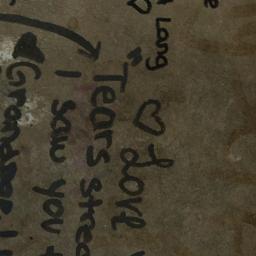 e
Lang
♡ Love
"Tears strea
I saw you
Grandpa I